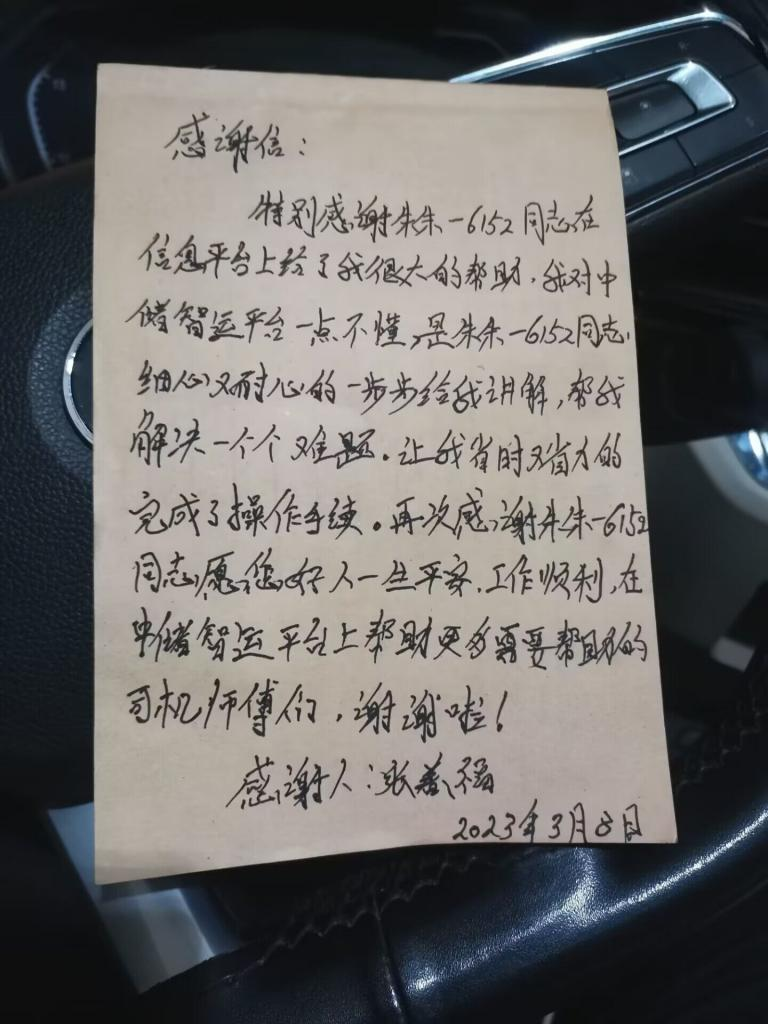 感谢信：
特别感谢朱朱-6152同志在
信息平台上给了我很大的帮助，我对中
储智运平台一点不懂，是朱朱-6152同志
细心又耐心的一步步给我讲解，帮我
解决一个个难题。让我省时又省力的
完成了操作手续。再次感谢朱朱-6152
同志愿您好人一生平安，工作顺利，在
中储智运平台上帮助更多需要帮助的
司机师傅们，谢谢啦！
感谢人：张善福
2023年3月8日